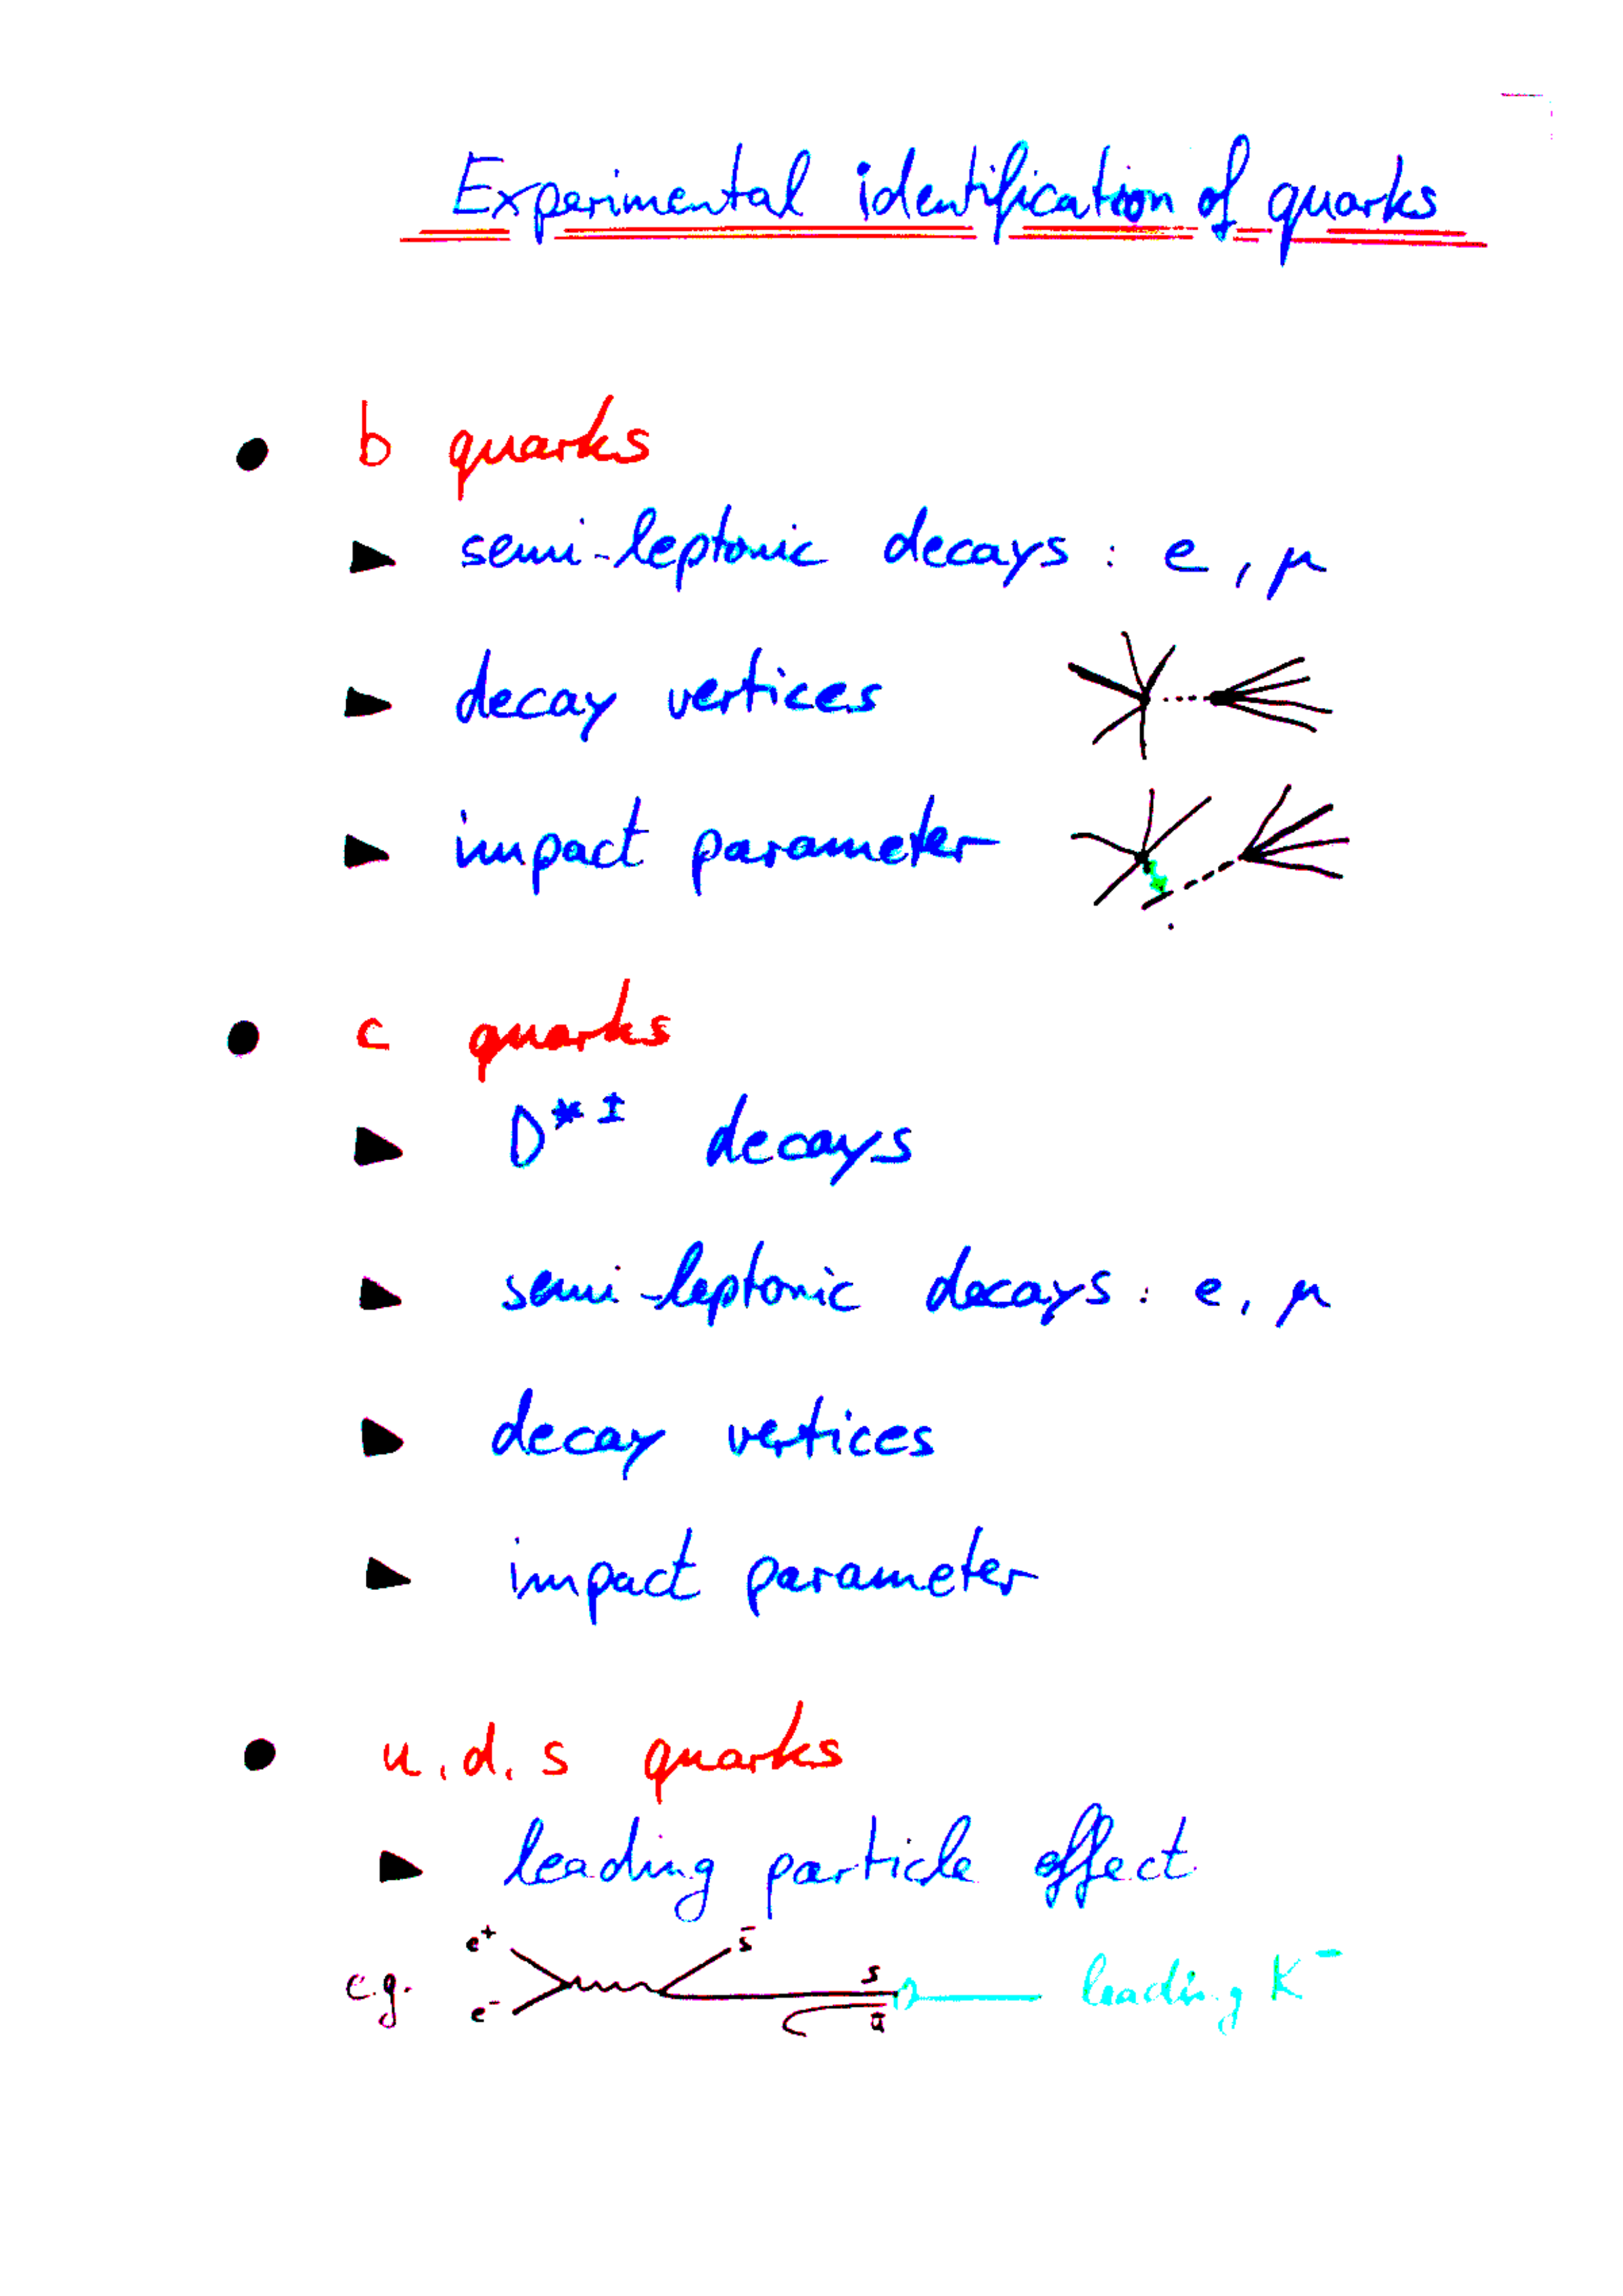 Experimental identification of quarks
● b quarks
► semi-leptonic decays : e, μ
► decay vertices
► impact parameter
● c quarks
► D*± decays
► semi-leptonic decays : e, μ
► decay vertices
► impact parameter
● u, d, s quarks
► leading particle effect
e⁺ s̄
e.g. s leading K⁻
e⁻ ū